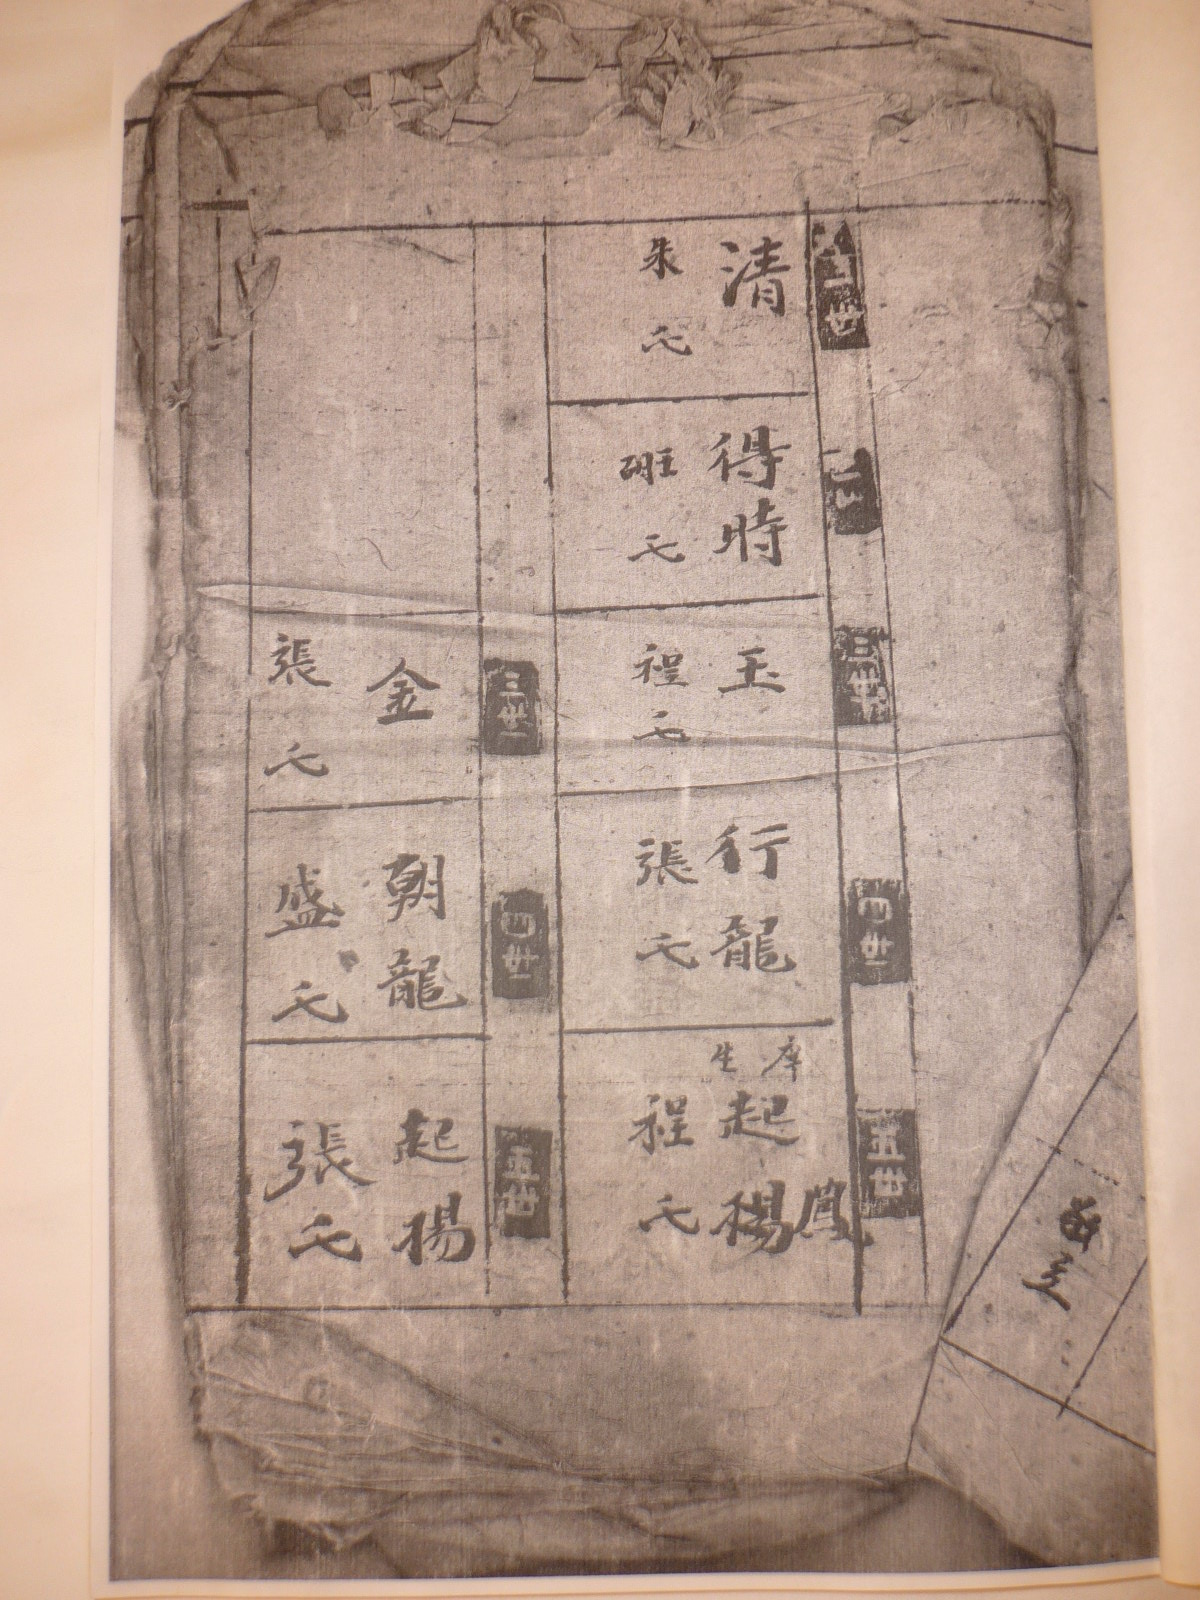 世
清
朱氏
得時
班氏
三世
玉
程氏
四世
行龍
張氏
五世
庠生
起鳳
楊
程氏
三世
金
張氏
四世
朝龍
盛氏
五世
起楊
張氏